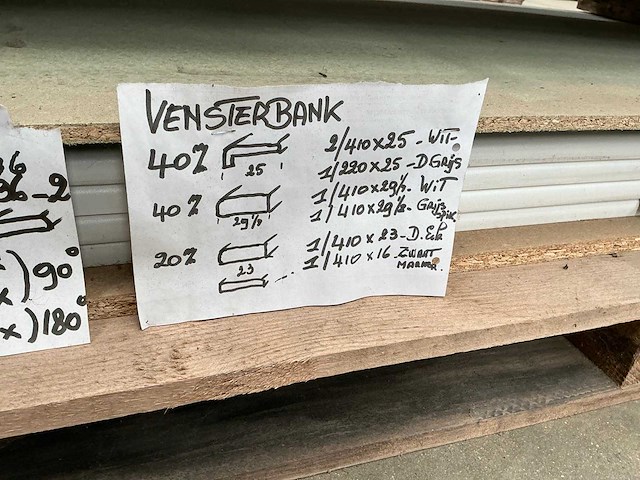 VENSTERBANK
40% 25 2/410x25 - WIT
1/220x25 - D GRIJS
40% 29½ 1/410x29½ - WIT
1/410x29½ - GRIJS
20% 23 1/410 x 23 - D. Eik
1/410 x 16 ZWART
MARMER
96-2
90°
x) 180°